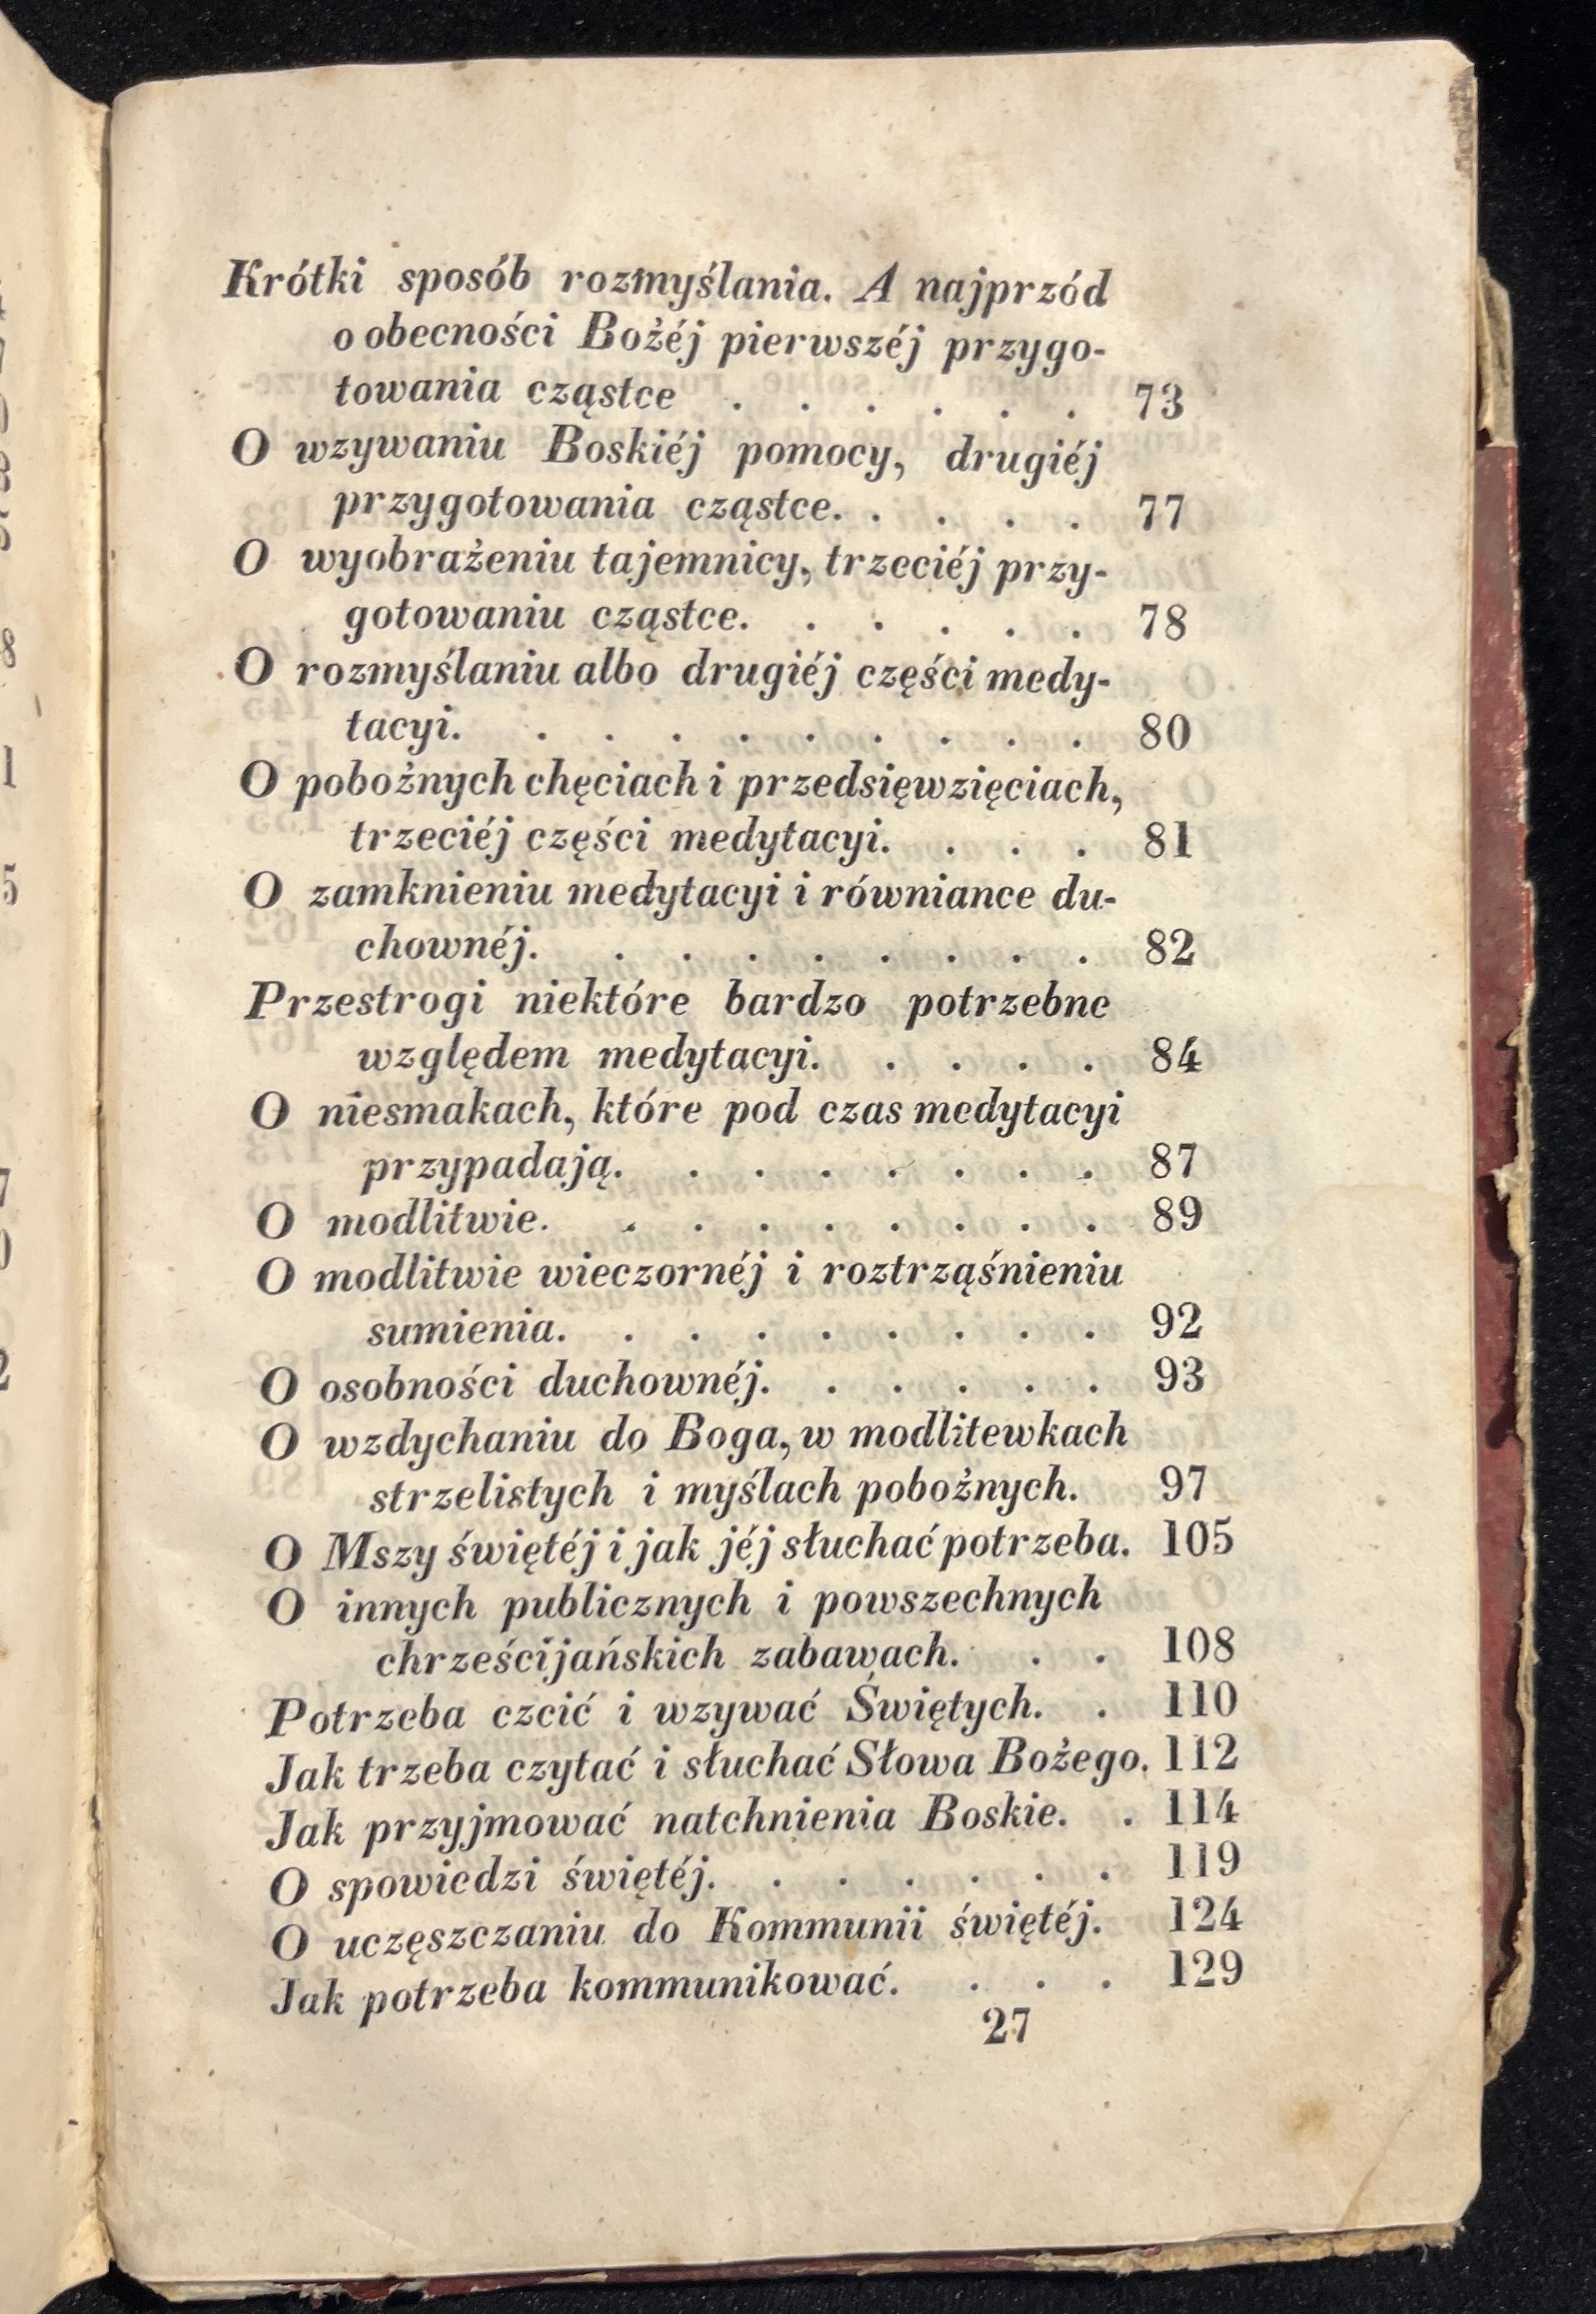 Krótki sposób rozmyślania. A najprzód
o obecności Bożéj pierwszéj przygo-
towania cząstce . . . . . . 73
O wzywaniu Boskiéj pomocy, drugiéj
przygotowania cząstce. . . . . 77
O wyobrażeniu tajemnicy, trzeciéj przy-
gotowaniu cząstce. . . . . . 78
O rozmyślaniu albo drugiéj części medy-
tacyi. . . . . . . . . . 80
O pobożnych chęciach i przedsięwzięciach,
trzeciéj części medytacyi. . . . 81
O zamknieniu medytacyi i równiance du-
chownéj. . . . . . . . . 82
Przestrogi niektóre bardzo potrzebne
względem medytacyi. . . . . 84
O niesmakach, które pod czas medytacyi
przypadają. . . . . . . . 87
O modlitwie. . . . . . . . . 89
O modlitwie wieczornéj i roztrząśnieniu
sumienia. . . . . . . . . 92
O osobności duchownéj. . . . . . 93
O wzdychaniu do Boga, w modlitewkach
strzelistych i myślach pobożnych. 97
O Mszy świętéj i jak jéj słuchać potrzeba. 105
O innych publicznych i powszechnych
chrześcijańskich zabawach. . . 108
Potrzeba czcić i wzywać Świętych. . 110
Jak trzeba czytać i słuchać Słowa Bożego. 112
Jak przyjmować natchnienia Boskie. . 114
O spowiedzi świętéj. . . . . . . 119
O uczęszczaniu do Kommunii świętéj. 124
Jak potrzeba kommunikować. . . . 129
27